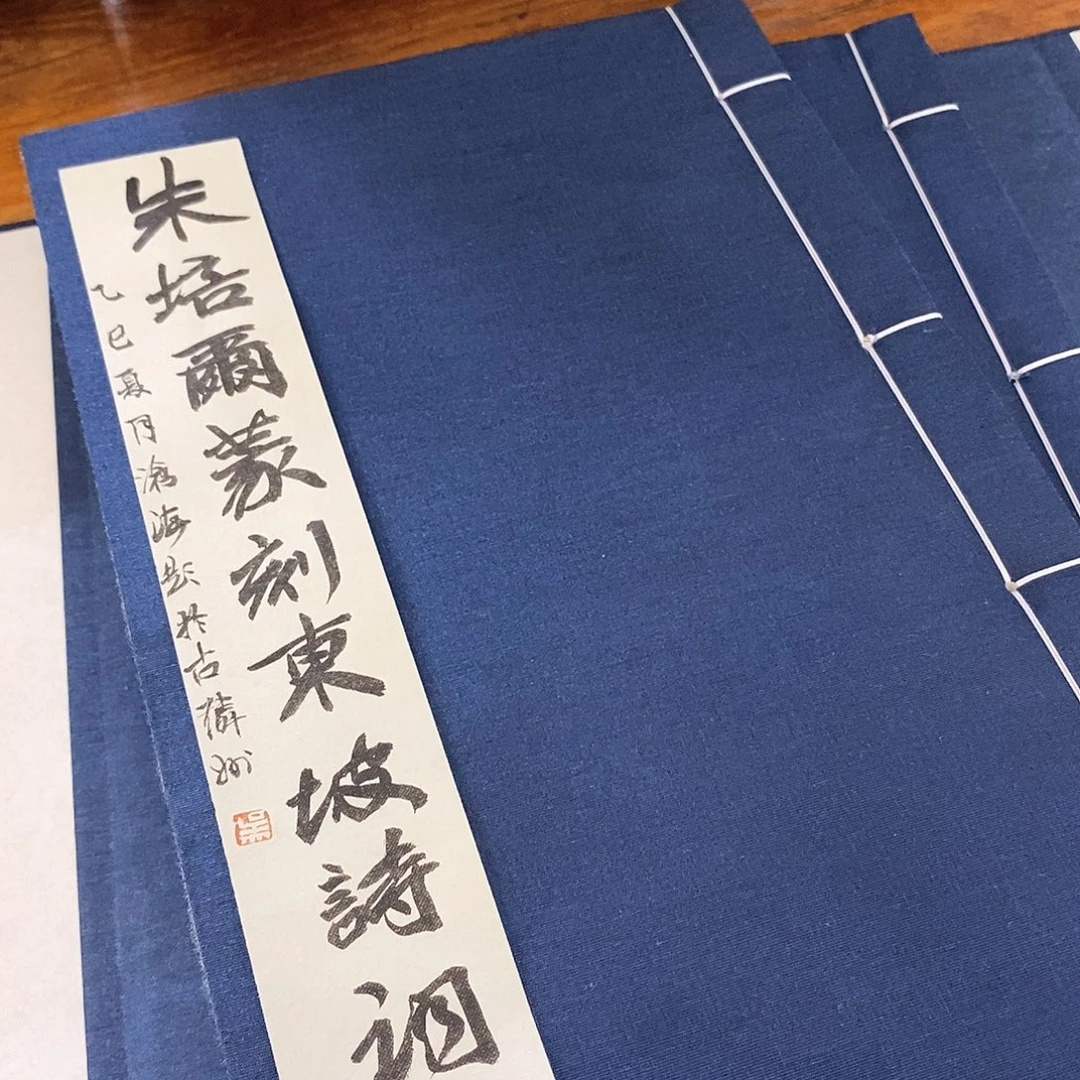 朱培爾篆刻東坡詩詞
乙巳夏月滄海題於古檇州